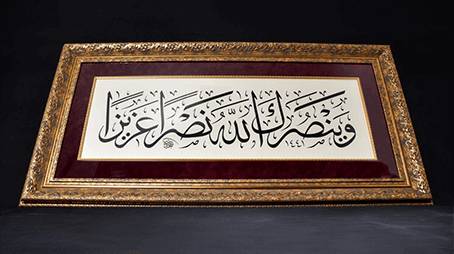 وينصرك الله نصرا عزيزا
١٤٤١